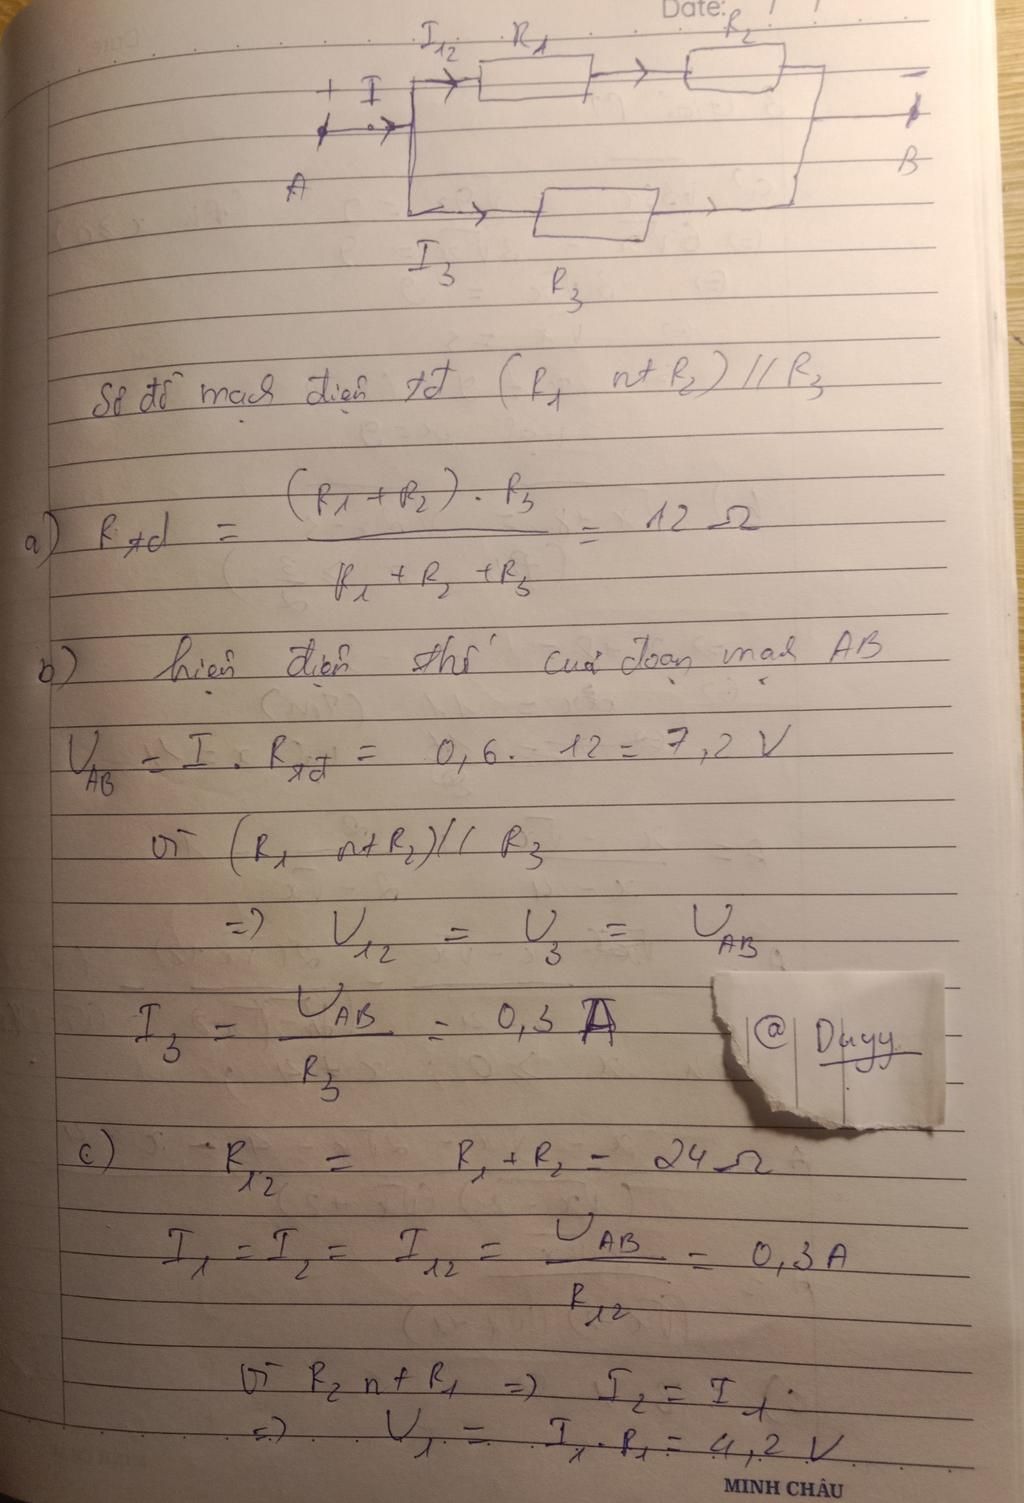 Date: / /
I₁₂ R₁ R₂
+ I −
A B
I₃ R₃
Sơ đồ mạch điện tđ (R₁ nt R₂) // R₃
a) R_tđ = (R₁ + R₂) . R₃ / R₁ + R₂ + R₃ = 12 Ω
b) hiện điện thế của đoạn mạch AB
U_AB = I . R_tđ = 0,6 . 12 = 7,2 V
vì (R₁ nt R₂) // R₃
=> U₁₂ = U₃ = U_AB
I₃ = U_AB / R₃ = 0,3 A
@ Duyy
c) R₁₂ = R₁ + R₂ = 24 Ω
I₁ = I₂ = I₁₂ = U_AB / R₁₂ = 0,3 A
vì R₂ nt R₁ => I₂ = I₁
=> U₁ = I₁ . R₁ = 4,2 V
MINH CHÂU